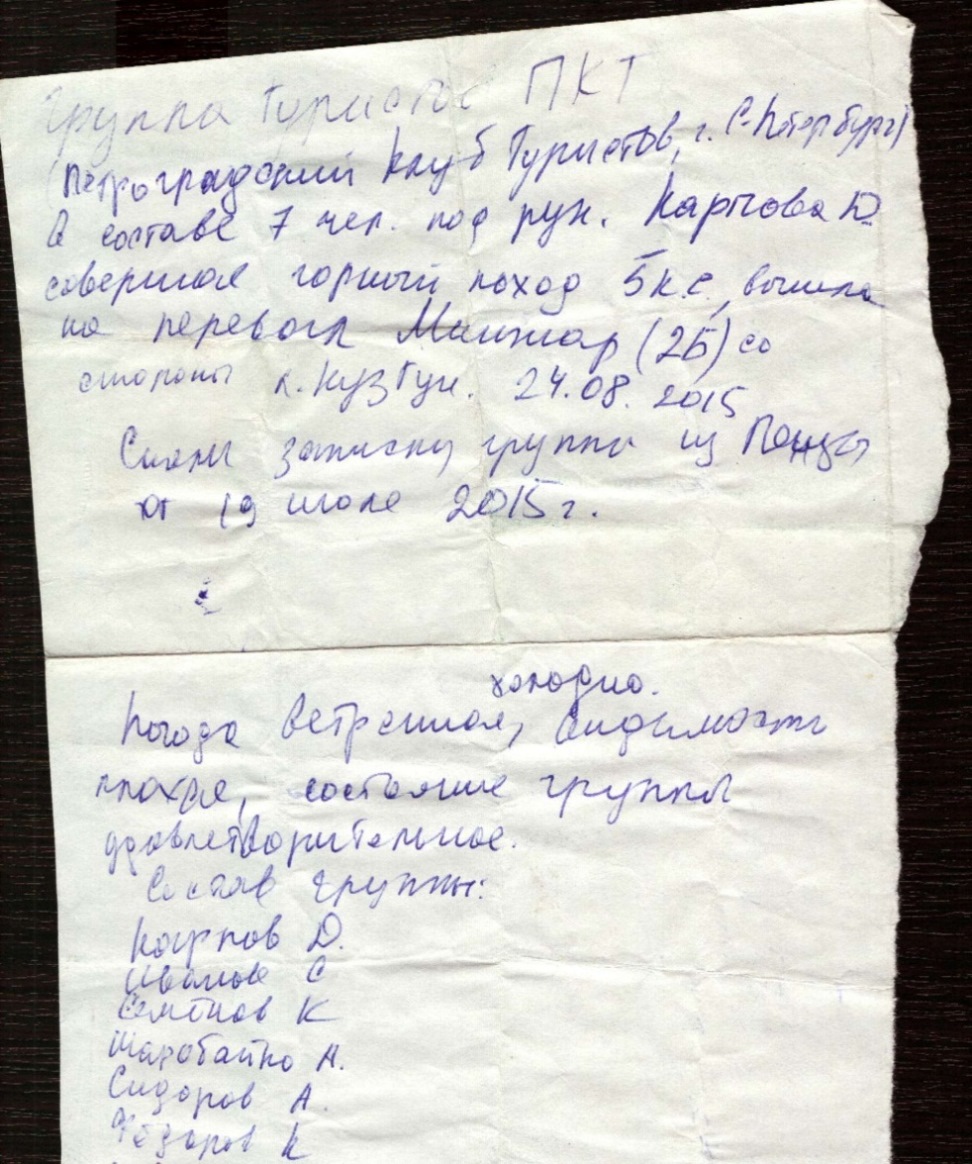 Группа Туристов ПКТ
(Петроградский Клуб Туристов, г. С.-Петербург)
в составе 7 чел. под рук. Карпова Д.
совершая горный поход 5 к.с., вышла
на перевал (2Б) со
стороны л. Кузгун. 24.08.2015
Сняли записку группы из Пензы
от 19 июля 2015 г.
холодно.
Погода ветренная, видимость
плохая, состояние группы
удовлетворительное.
Состав группы:
Карпов Д.
Иванов С
Семёнов К
А.
Сидоров А.
Фёдоров К